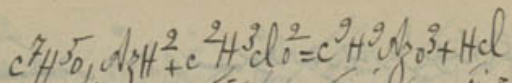 c⁷H⁵o, AzH² + c²H³clo² = c⁹H⁹Azo³ + Hcl